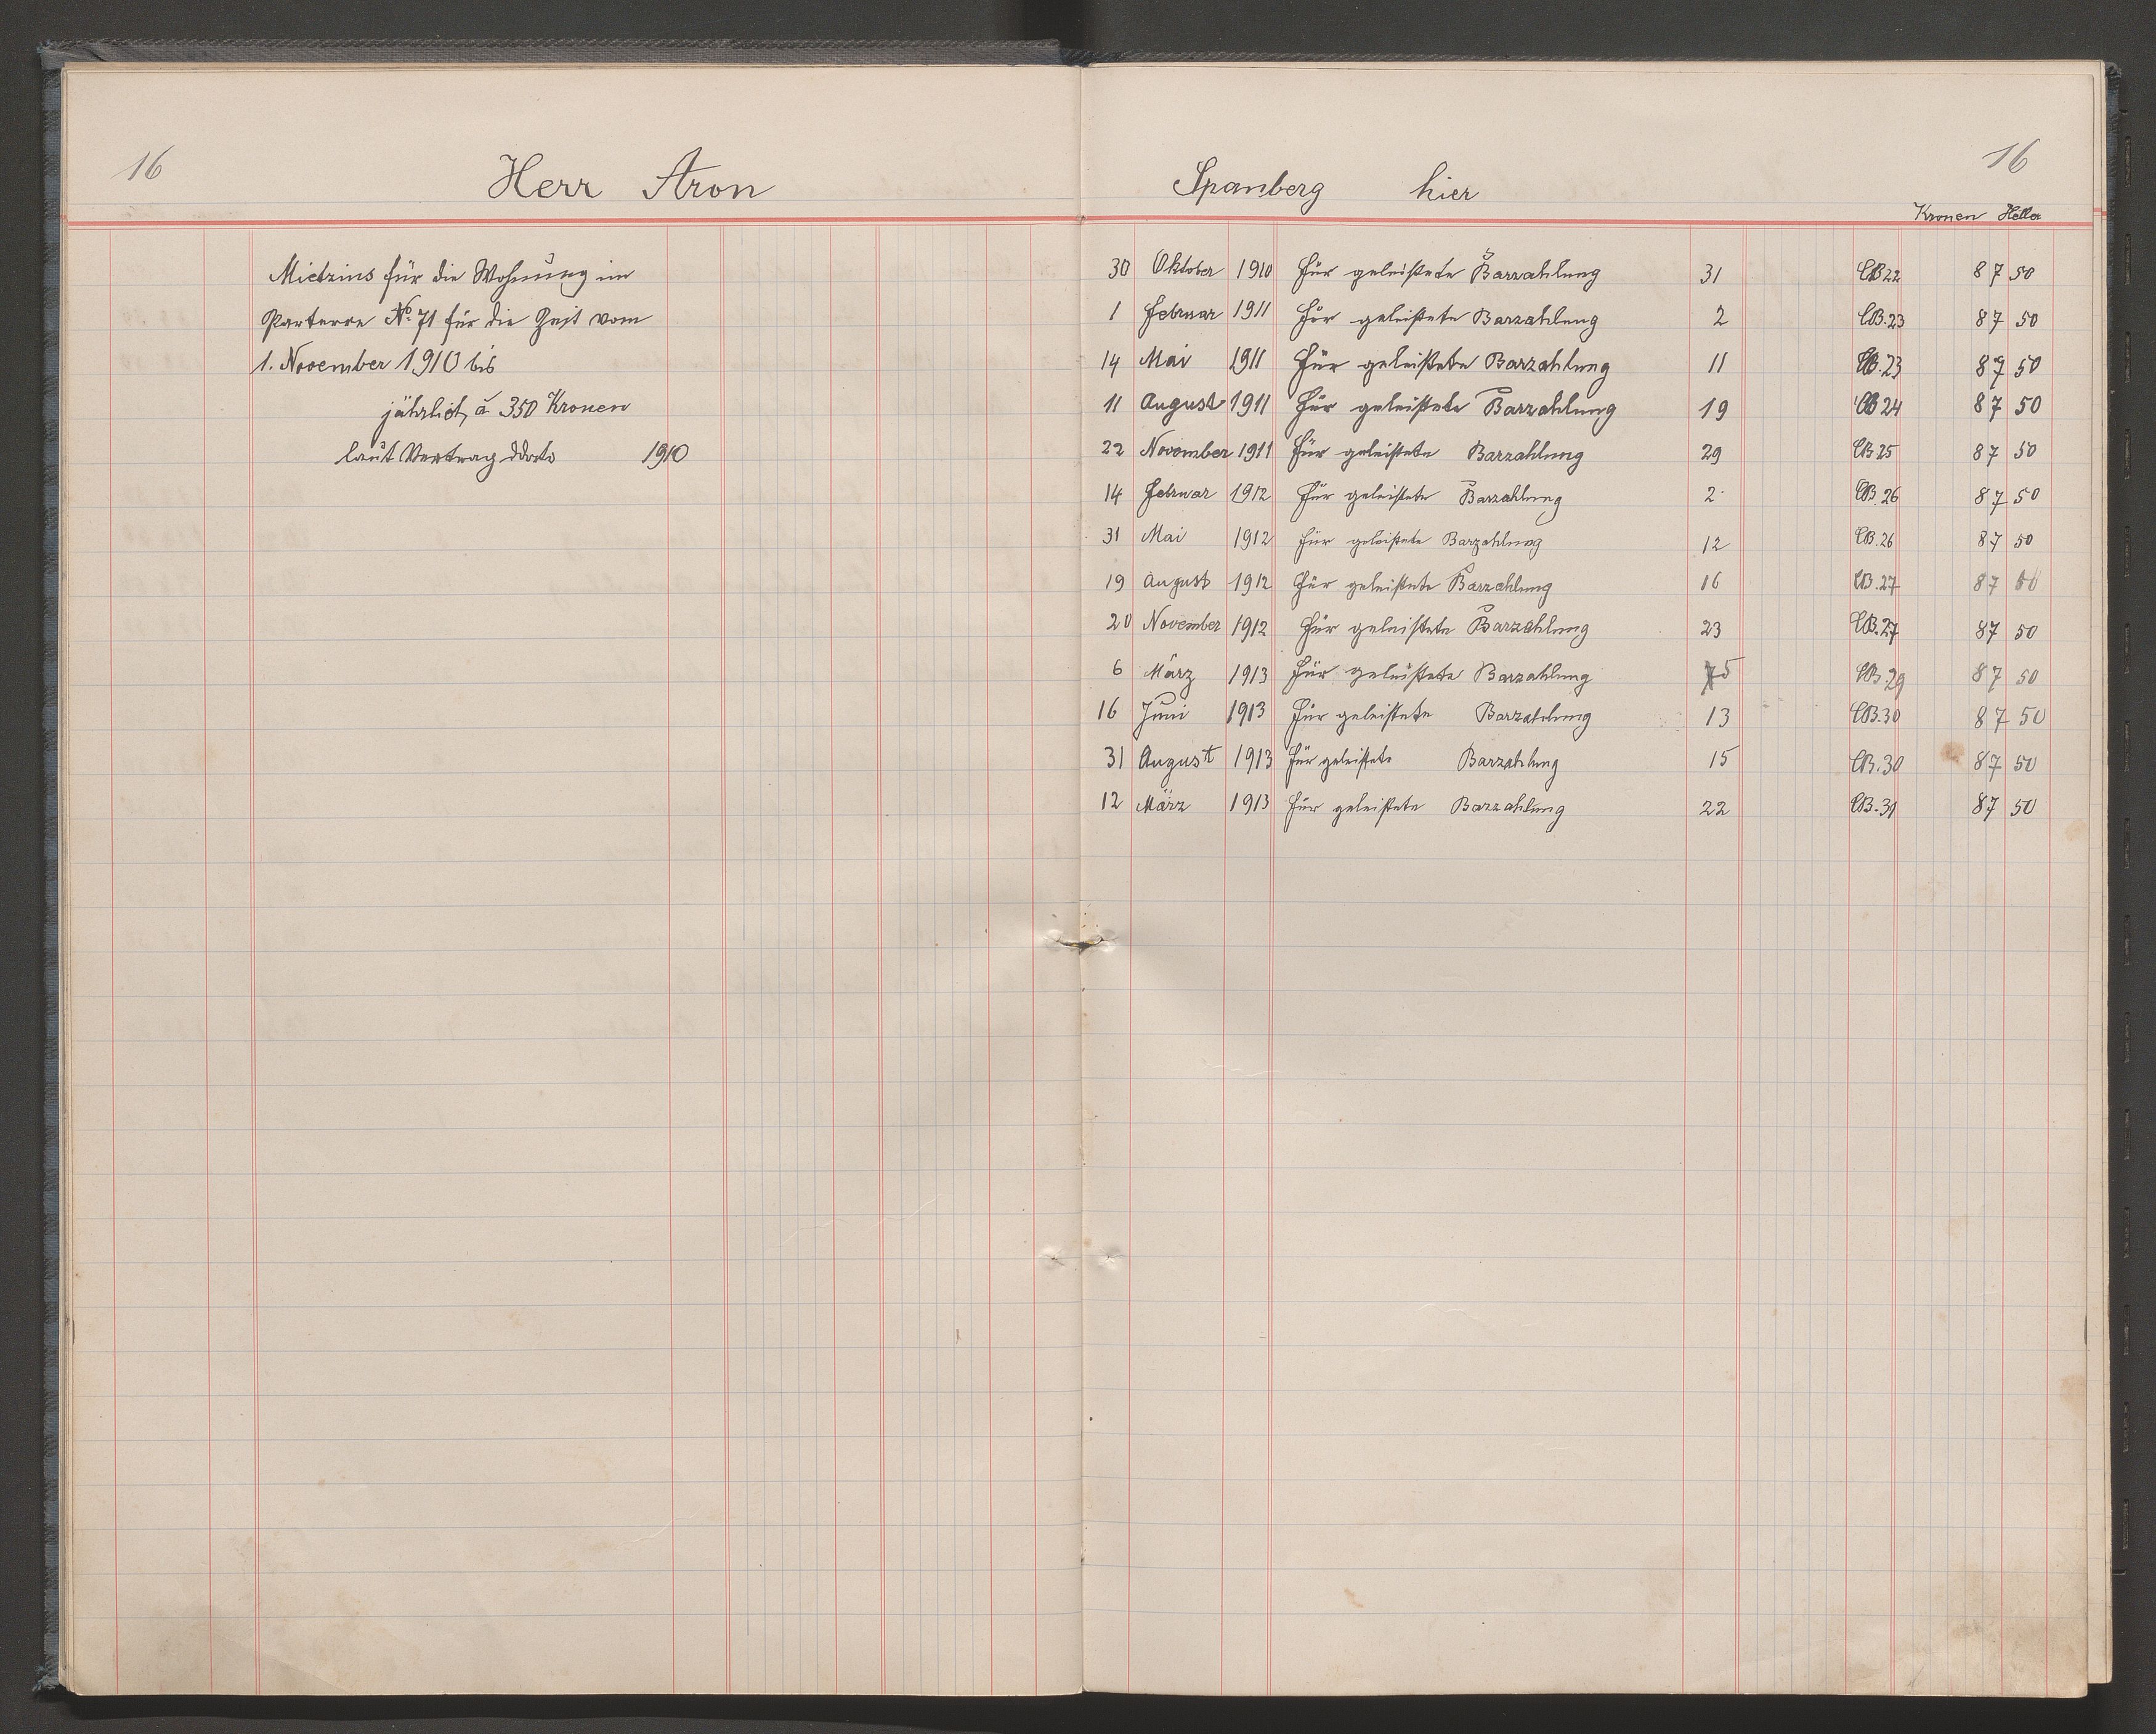 16
Herr Aron
Mietzins für die Wohnung im
Parterre No. 71 für die Zeit vom
1. November 1910 bis
jährlich á 350 Kronen
laut Vertrag ddato 1910
16
Spanberg hier
Kronen Heller
30 Oktober 1910 Für geleistete Barzahlung 31 CB 22 87 50
1 Februar 1911 Für geleistete Barzahlung 2 CB. 23 87 50
14 Mai 1911 Für geleistete Barzahlung 11 CB. 23 87 50
11 August 1911 Für geleistete Barzahlung 19 CB 24 87 50
22 November 1911 Für geleistete Barzahlung 29 CB 25 87 50
14 Februar 1912 Für geleistete Barzahlung 2 CB. 26 87 50
31 Mai 1912 Für geleistete Barzahlung 12 CB. 26 87 50
19 August 1912 Für geleistete Barzahlung 16 CB. 27 87 50
20 November 1912 Für geleistete Barzahlung 23 CB. 27 87 50
6 März 1913 Für geleistete Barzahlung 5 CB. 29 87 50
16 Juni 1913 Für geleistete Barzahlung 13 CB. 30 87 50
31 August 1913 Für geleistete Barzahlung 15 CB. 30 87 50
12 März 1913 Für geleistete Barzahlung 22 CB. 31 87 50